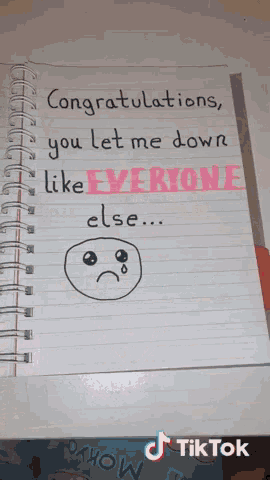 Congratulations,
you let me down
like EVERYONE
else...
TikTok